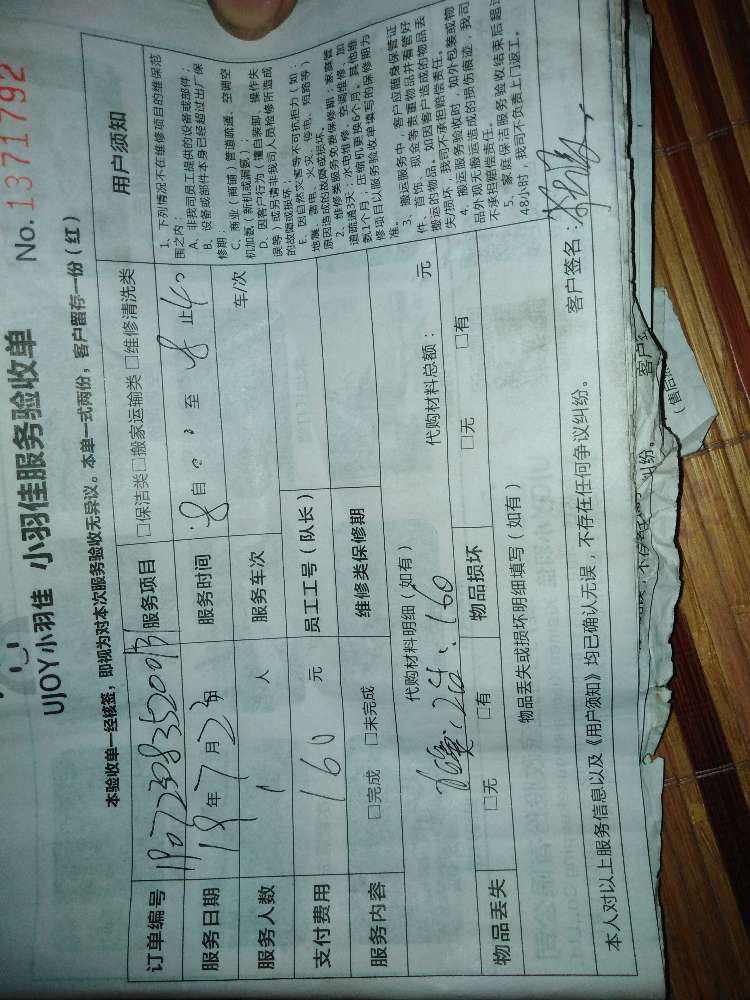 UJOY小羽佳 小羽佳服务验收单 No. 1371792
本验收单一经核签，即视为对本次服务验收无异议。本单一式两份，客户留存一份（红）
订单编号 服务项目 □保洁类□搬家运输类 □维修清洗类
服务日期 19年7月23日 服务时间 自 至 止
服务人数 1 人 服务车次 车/次
支付费用 160 元 员工工号（队长）
服务内容 □完成 □未完成 维修类保修期
代购材料明细（如有） 代购材料总额： 元
160
物品丢失 □无 □有 物品损坏 □无 □有
物品丢失或损坏明细填写（如有）
本人对以上服务信息以及《用户须知》均已确认无误，不存在任何争议纠纷。 客户签名：
用户须知
1、下列情况不在维修项目的维保范
围之内：
A、非我司员工提供的设备或部件；
B、设备或部件本身已经超过出厂保
修期；
C、商业（商铺）管道疏通、空调空
机加氨（新机或漏氨）；
D、因客户行为（擅自装卸、操作失
误等）或另请非我司人员检修所造成
的故障或损坏；
E、因自然灾害等不可抗拒力（如：
地震、雷电、火灾、停电、短路等）
原因造成的故障或损坏。
2、维修类服务免费保修期：家庭管
道疏通3天；水电维修、空调维修、加
氨1个月；压缩机更换6个月。其他维
修项目以服务验收单填写的保修期为
准。
3、搬运服务中，客户应随身保管证
件、首饰、现金等贵重物品并看管好
搬运的物品。如因客户造成的物品丢
失/损坏，我司不承担赔偿责任。
4、搬运服务验收时，如外包装或物
品外观无搬运造成的损伤痕迹，我司
不承担赔偿责任。
5、家庭保洁服务验收结束后超过
48小时，我司不负责上门返工。
客户
（售后
纠纷。